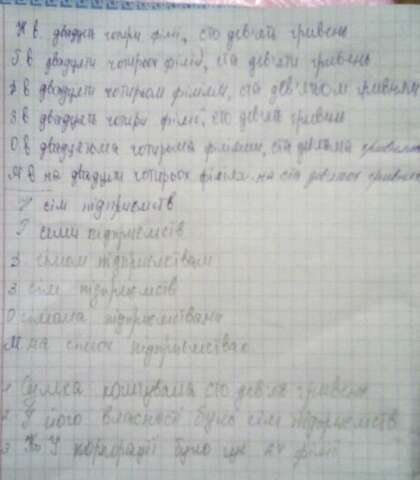 Н в. двадцять чотири філії, сто дев'ять гривень
в двадцяти чотирьох філій, ста дев'яти гривень
в двадцяти чотирьом філіям, ста дев'ятьом гривням
З в двадцять чотири філії, сто дев'ять гривень
О в чотирьома філіями, ста дев'ятьма
М в на двадцяти чотирьох філіях на ста дев'ятьох
сім підприємств
семи підприємств
сімом підприємствам
З сім підприємств
О сімома підприємствами
М на сімох підприємствах
Сумка коштувала сто дев'ять гривень
У його власності було сім підприємств
У корпорації було 24 філії